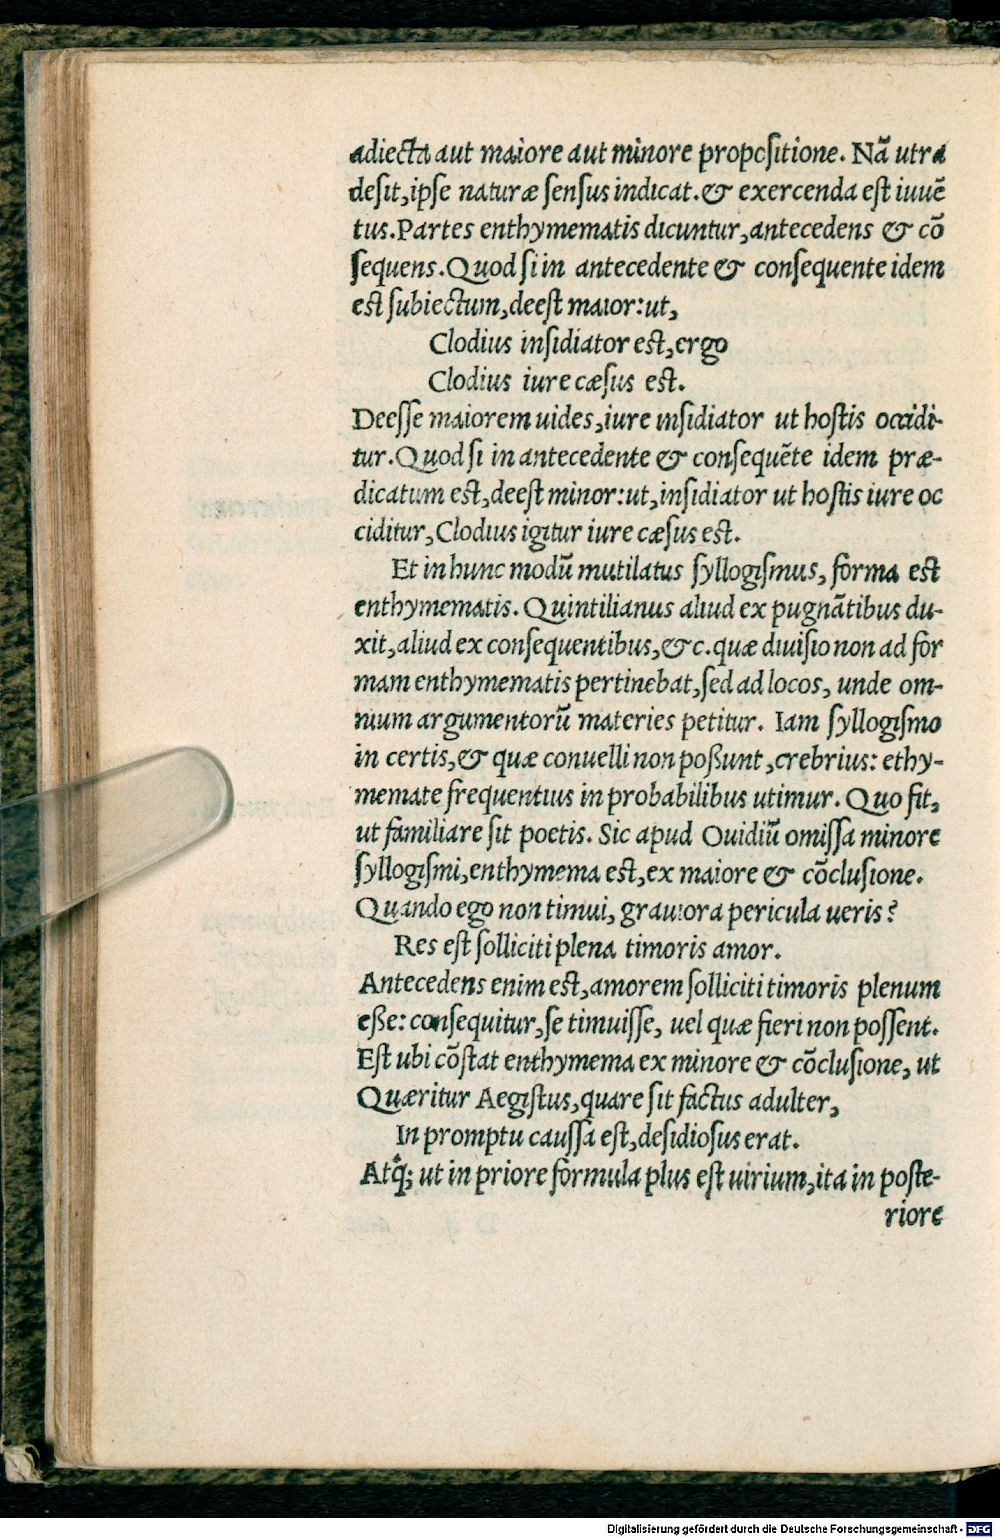 adiecta aut maiore aut minore propositione. Nā utra
desit, ipse naturæ sensus indicat. & exercenda est iuuē
tus. Partes enthymematis dicuntur, antecedens & cō
sequens. Quod si in antecedente & consequente idem
est subiectum, deest maior: ut,
Clodius insidiator est, ergo
Clodius iure cæsus est.
Deesse maiorem uides, iure insidiator ut hostis occidi-
tur. Quod si in antecedente & consequēte idem præ-
dicatum est, deest minor: ut, insidiator ut hostis iure oc
ciditur, Clodius igitur iure cæsus est.
Et in hunc modū mutilatus syllogismus, forma est
enthymematis. Quintilianus aliud ex pugnātibus du-
xit, aliud ex consequentibus, &c. quæ diuisio non ad for
mam enthymematis pertinebat, sed ad locos, unde om-
nium argumentorū materies petitur. Iam syllogismo
in certis, & quæ conuelli non poßunt, crebrius: ethy-
memate frequentius in probabilibus utimur. Quo fit,
ut familiare sit poetis. Sic apud Ouidiū omissa minore
syllogismi, enthymema est, ex maiore & cōclusione.
Quando ego non timui, grauiora pericula ueris?
Res est solliciti plena timoris amor.
Antecedens enim est, amorem solliciti timoris plenum
eße: consequitur, se timuisse, uel quæ fieri non possent.
Est ubi cōstat enthymema ex minore & cōclusione, ut
Quæritur Aegistus, quare sit factus adulter,
In promptu caussa est, desidiosus erat.
Atq́; ut in priore formula plus est uirium, ita in poste-
riore
Digitalisierung gefördert durch die Deutsche Forschungsgemeinschaft - DFG